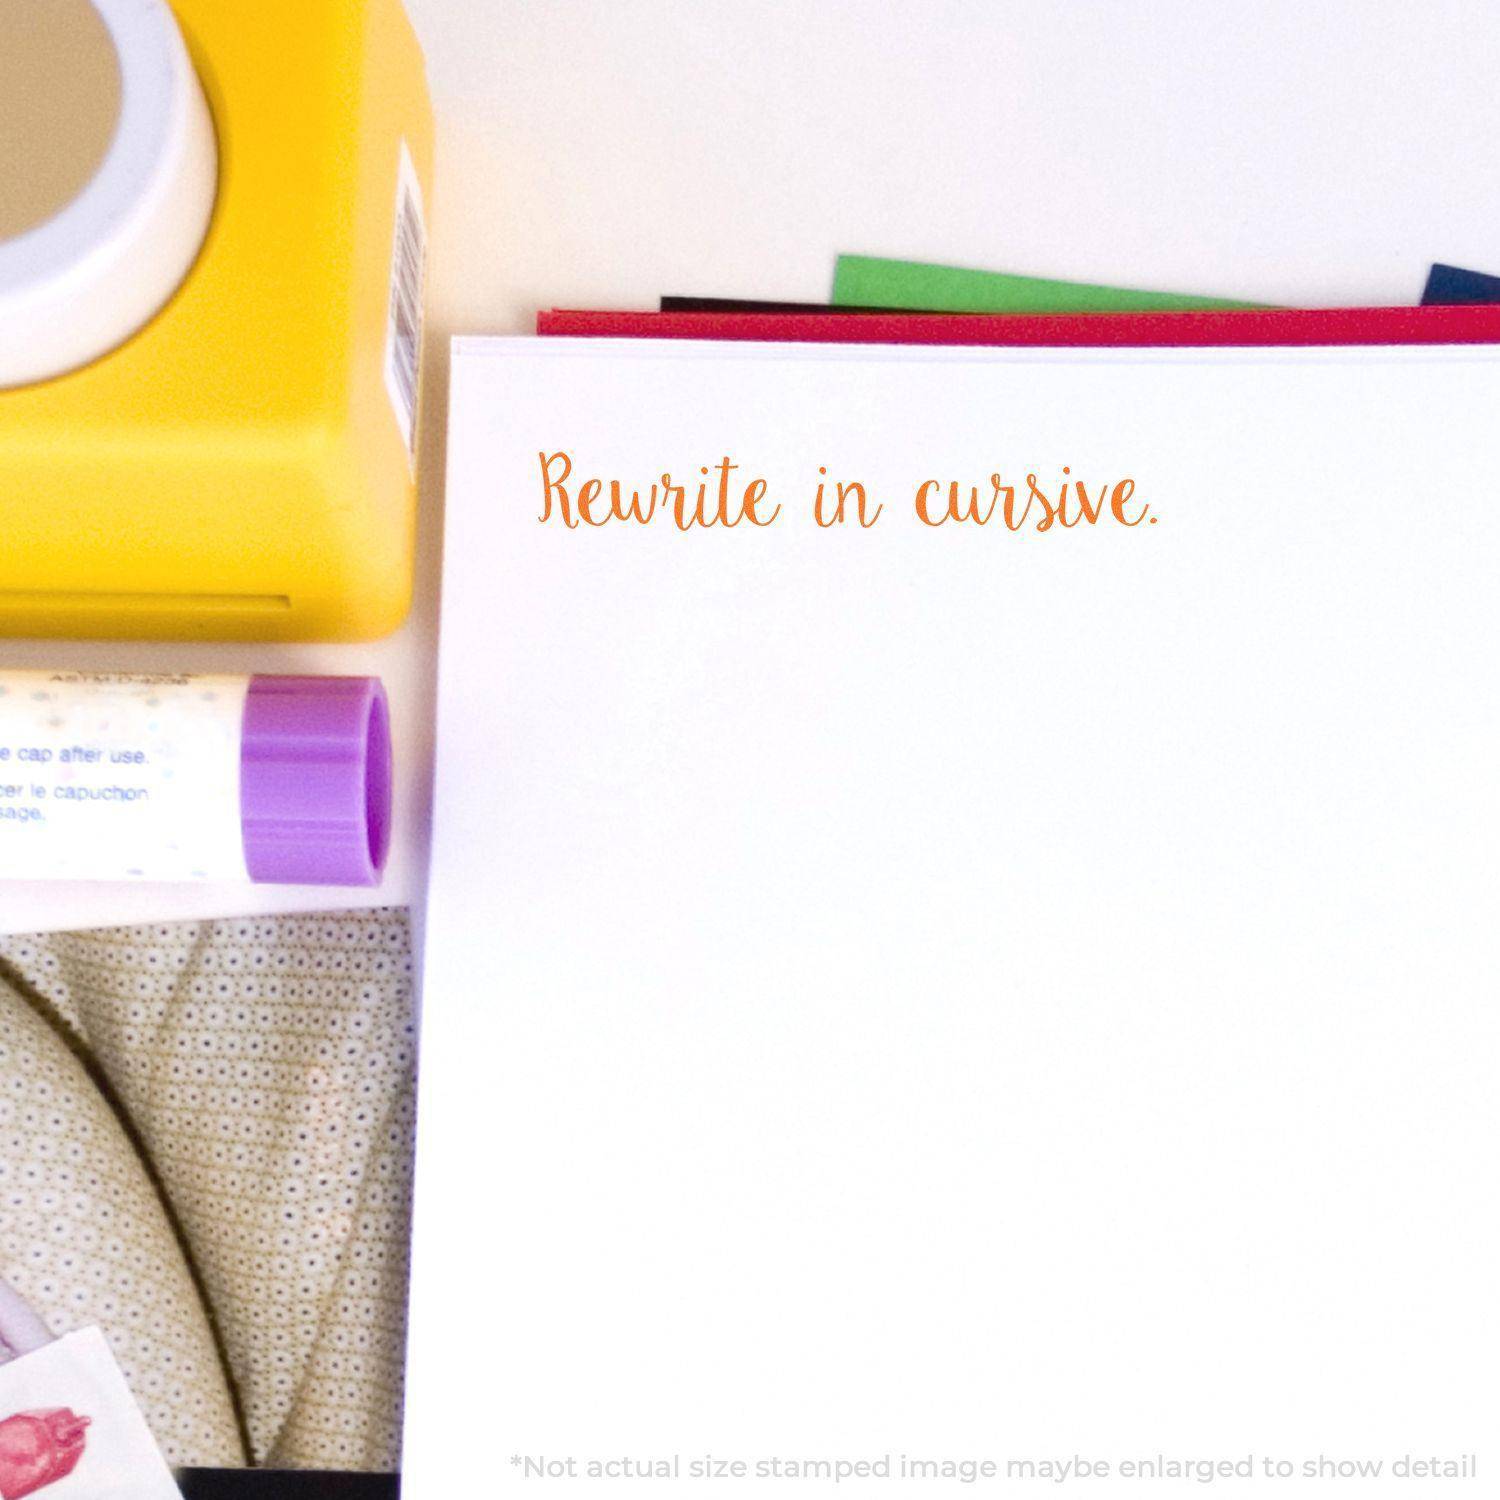 Rewrite in cursive.
ASTM D-4236
e cap after use.
cer le capuchon
sage.
*Not actual size stamped image maybe enlarged to show detail